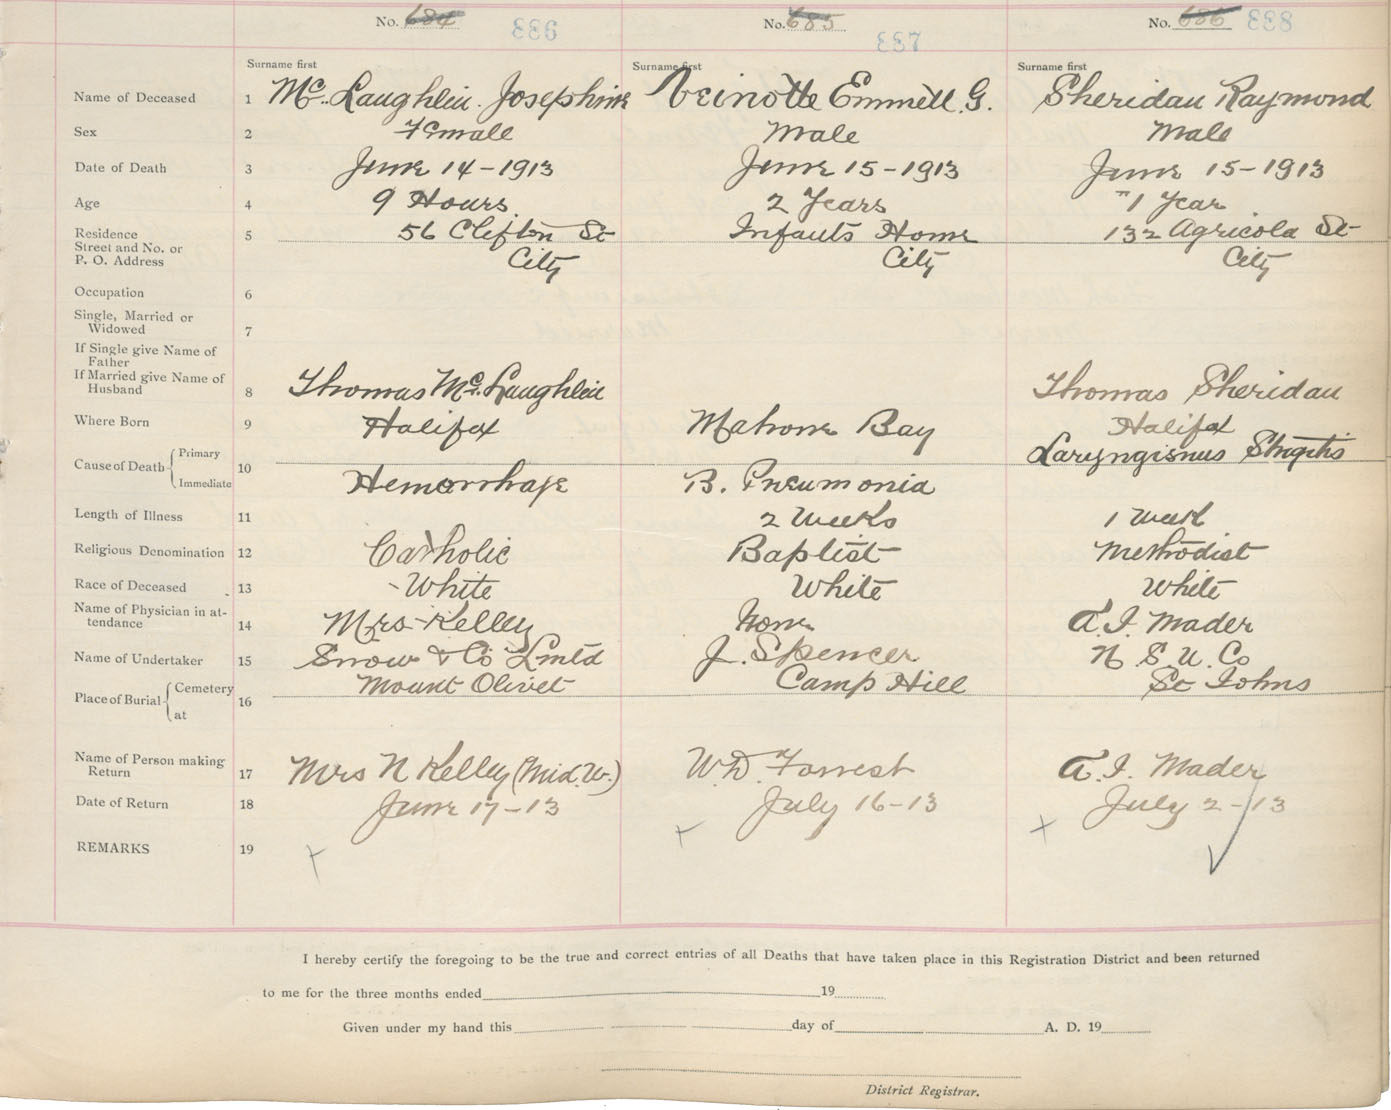 No. 684 336 No. 685 337 No. 686 338
Surname first Surname first Surname first
Name of Deceased 1 Mc. Laughlin Josephine Veinotte Emmett G. Sheridan Raymond
Sex 2 Female Male Male
Date of Death 3 June 14-1913 June 15-1913 June 15-1913
Age 4 9 Hours 2 Years 1 Year
Residence 5 56 Clifton St Infants Home 132 Agricola St
Street and No. or
P. O. Address City City City
Occupation 6
Single, Married or
Widowed 7
If Single give Name of
Father
If Married give Name of
Husband 8 Thomas Mc. Laughlin Thomas Sheridan
Where Born 9 Halifax Mahone Bay Halifax
Cause of Death Primary Laryngismus
10
Immediate Hemorrhage B. Pneumonia
Length of Illness 11 2 Weeks 1 Week
Religious Denomination 12 Catholic Baptist Methodist
Race of Deceased 13 White White White
Name of Physician in at-
tendance 14 Mrs Kelley None A. I. Mader
Name of Undertaker 15 Snow & Co Lmtd J. Spencer N. S. U. Co
Place of Burial Cemetery Mount Olivet Camp Hill St Johns
16
at
Name of Person making
Return 17 Mrs N Kelley (Mid. W.) W. D. Forrest A. I. Mader
Date of Return 18 June 17-13 July 16-13 July 2-13
REMARKS 19
I hereby certify the foregoing to be the true and correct entries of all Deaths that have taken place in this Registration District and been returned
to me for the three months ended 19
Given under my hand this day of A. D. 19
District Registrar.